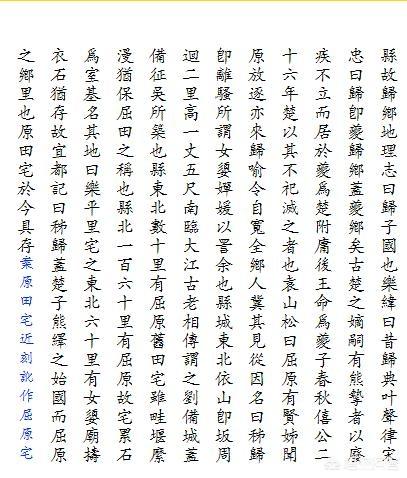 縣故歸鄉地理志曰歸子國也樂緯曰昔歸典叶聲律宋
忠曰歸即夔歸鄉蓋夔鄉矣古楚之嫡嗣有熊摯者以廢
疾不立而居於夔爲楚附庸後王命爲夔子春秋僖公二
十六年楚以其不祀滅之者也袁山松曰屈原有賢姊聞
原放逐亦來歸喻令自寬全鄉人冀其見從因名曰秭歸
卽離騷所謂女嬃嬋媛以詈余也縣城東北依山卽坂周
迴二里高一丈五尺南臨大江古老相傳謂之劉備城蓋
備征吳所築也縣東北數十里有屈原舊田宅雖畦堰縻
漫猶保屈田之稱也縣北一百六十里有屈原故宅累石
爲室基名其地曰樂平里宅之東北六十里有女嬃廟擣
衣石猶存故宜都記曰秭歸蓋楚子熊繹之始國而屈原
之鄉里也原田宅於今具存案原田宅近刻訛作屈原宅